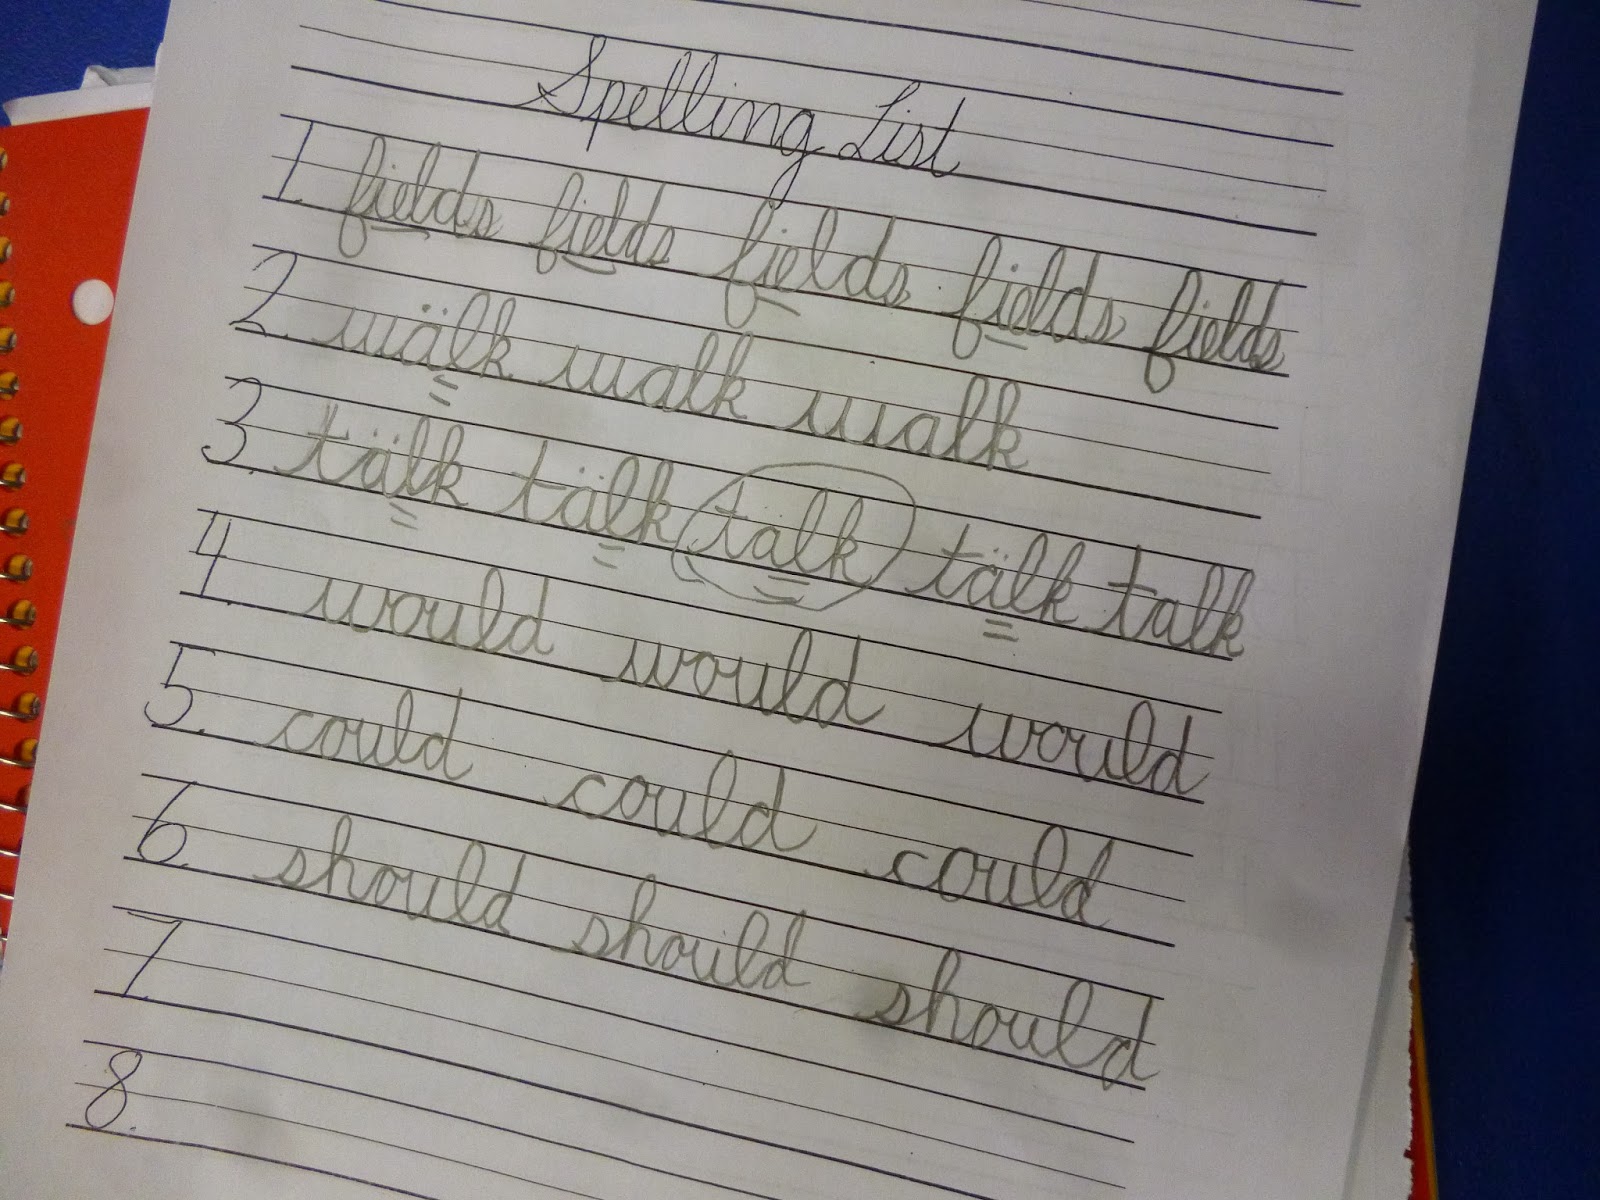 Spelling List
1. fields fields fields fields fields
2. wälk walk walk
3. tälk tälk tälk tälk talk
4. would would would
5. could could could
6. should should should
7.
8.